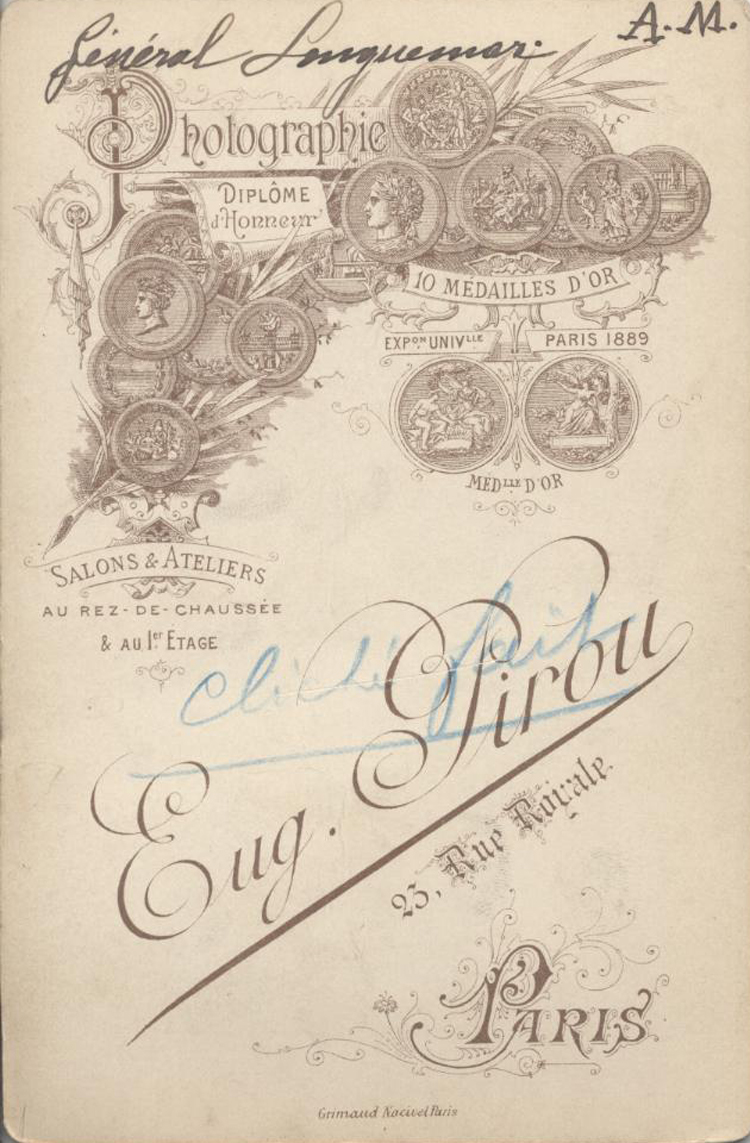 Général Longuemar
A. M.
Photographie
DIPLÔME
d'Honneur
10 MÉDAILLES D'OR
EXPON UNIVLLE PARIS 1889
MEDLLE D'OR
SALONS & ATELIERS
AU REZ-DE-CHAUSSÉE
& AU 1er ETAGE
cliché fait
Eug. Pirou
23, Rue Royale.
PARIS
Grimaud Nacivet Paris